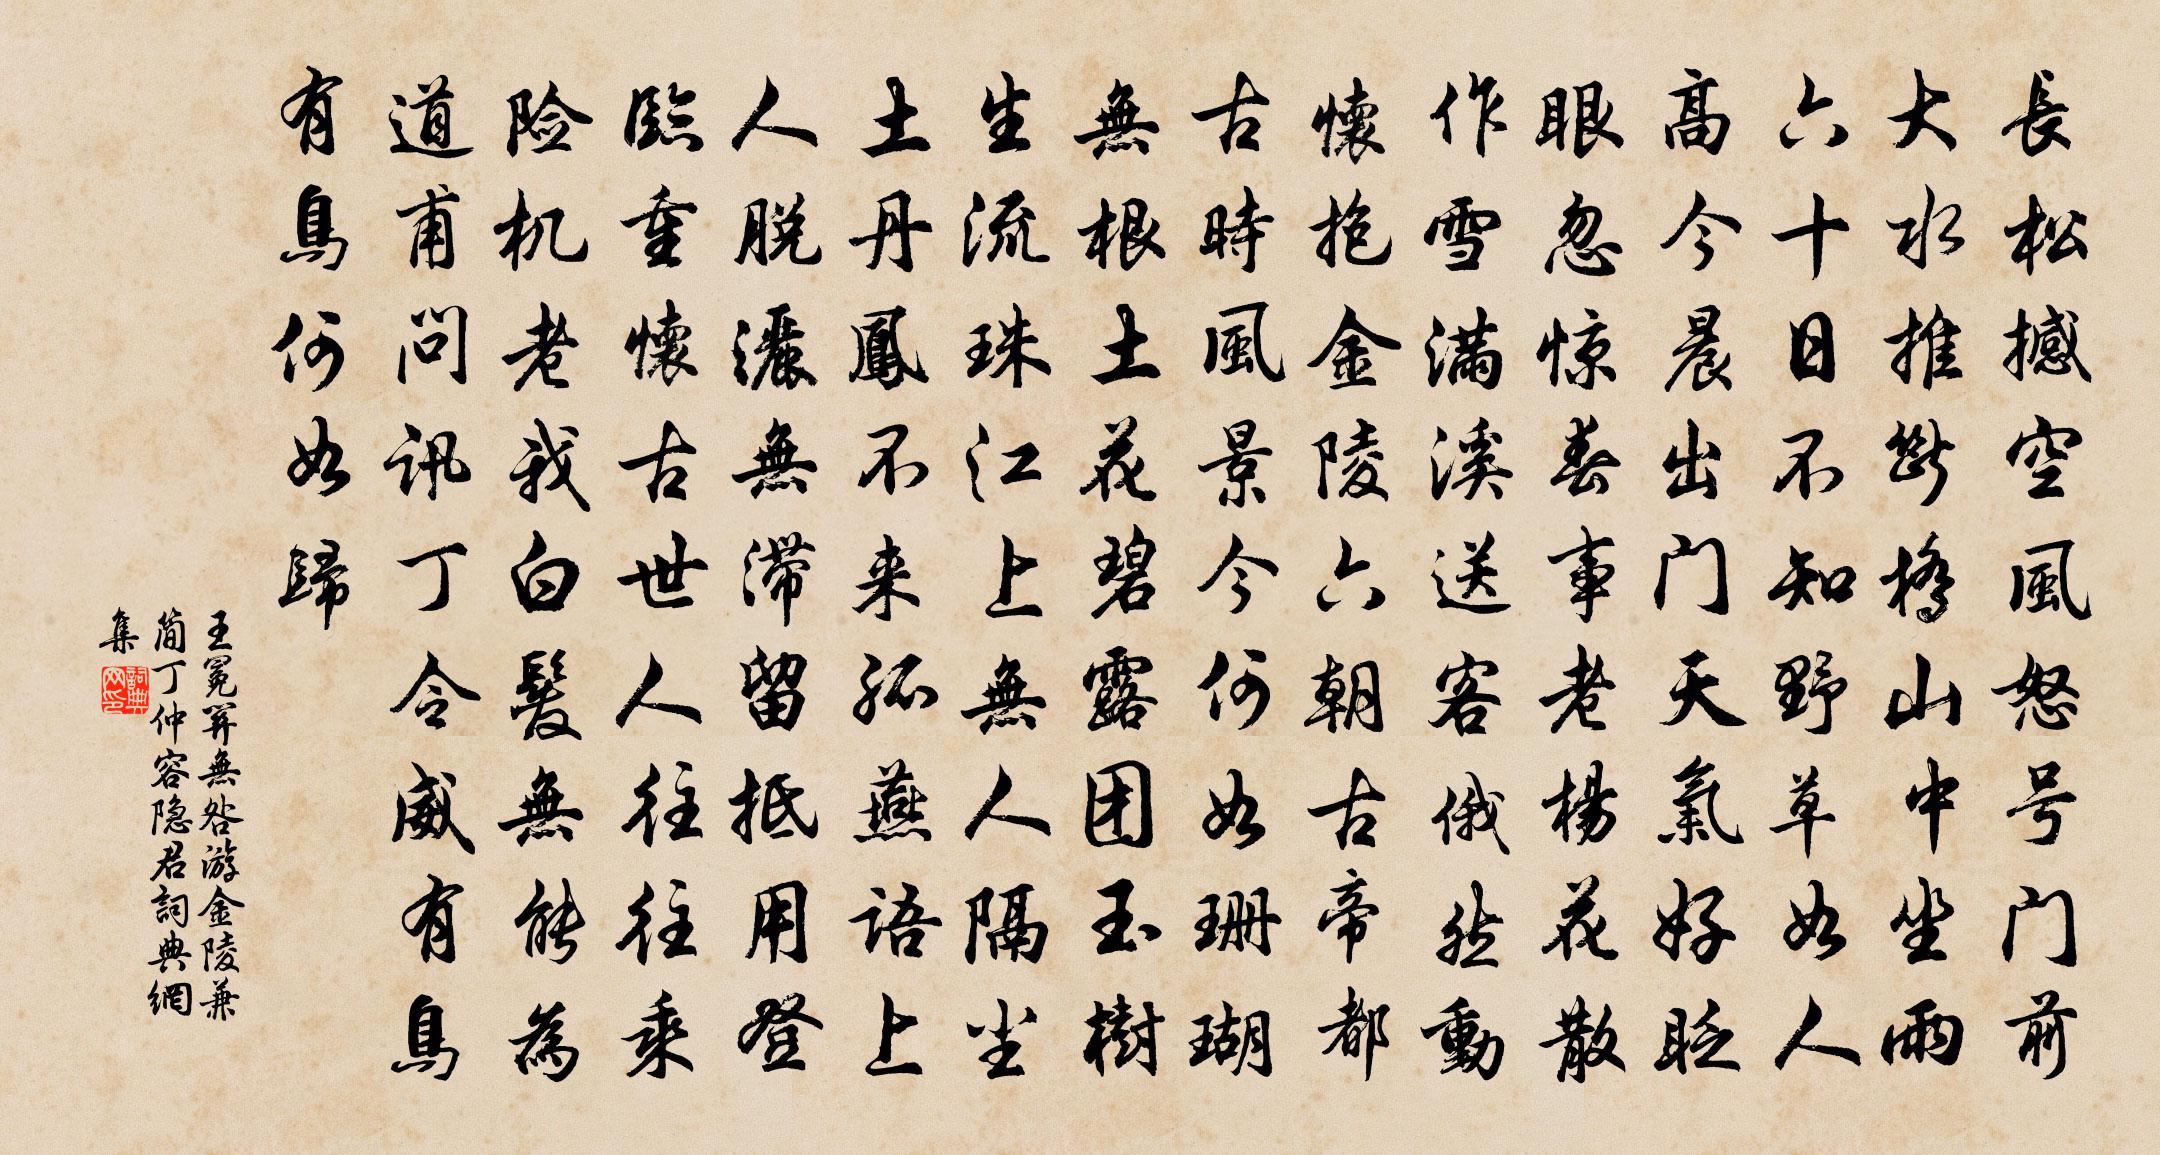 長松撼空風怒号门前
大水推斷橋山中坐雨
六十日不知野草如人
高今晨出门天氣好眨
眼忽惊春事老楊花散
作雪滿溪送客俄然動
懷抱金陵六朝古帝都
古時風景今何如珊瑚
無根土花碧露团玉樹
生流珠江上無人隔尘
土丹鳳不来孤燕语上
人脱灑無滞留抵用登
臨重懷古世人往往乘
险机老我白髮無能為
道甫问讯丁令威有鳥
有鳥何如歸
王冕笄無咎游金陵兼
简丁仲容隐君詞典網
集
詞典网印